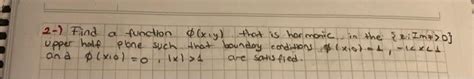 2-) Find a function ϕ(x,y) that is harmonic in the {z: Imz>0}
upper half plane such that boundary conditions ϕ(x,0)=1, -1<x<1
and ϕ(x,0)=0, |x|>1 are satisfied.